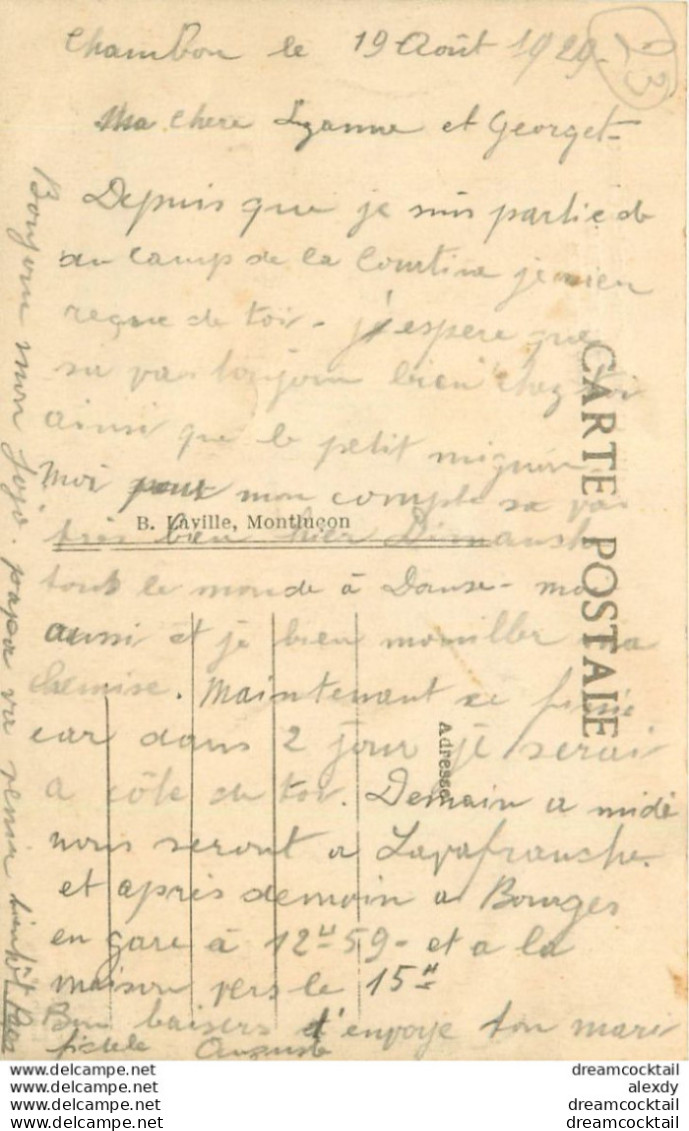 Chambon le 19 Août 1929-
23
Ma chere Lyanne et Georget-
Depuis que je suis partie de
du camp de la Courtine je rien
reçue de toi - j'espere que
sa vas toujour bien chez toi
ainsi que le petit mignon
Moi pour mon compte sa vas
très bien hier Dimansh
tous le monde à Danse - moi
aussi et je bien mouiller ma
chemise. Maintenant se finie
car dans 2 jour je serai
a côte de toi. Demain a midi
nous seront a Lavafranche.
et après demain a Bourges
en gare à 12H 59 - et a la
maison vers le 15H
Bon baisers t'envoye ton mari
fidele Auguste
Bonjour mon Jojo. papa va venir bientôt
CARTE POSTALE
B. Laville, Montluçon
Adresse
www.delcampe.net
dreamcocktail
alexdy
dreamcocktail
dreamcocktail